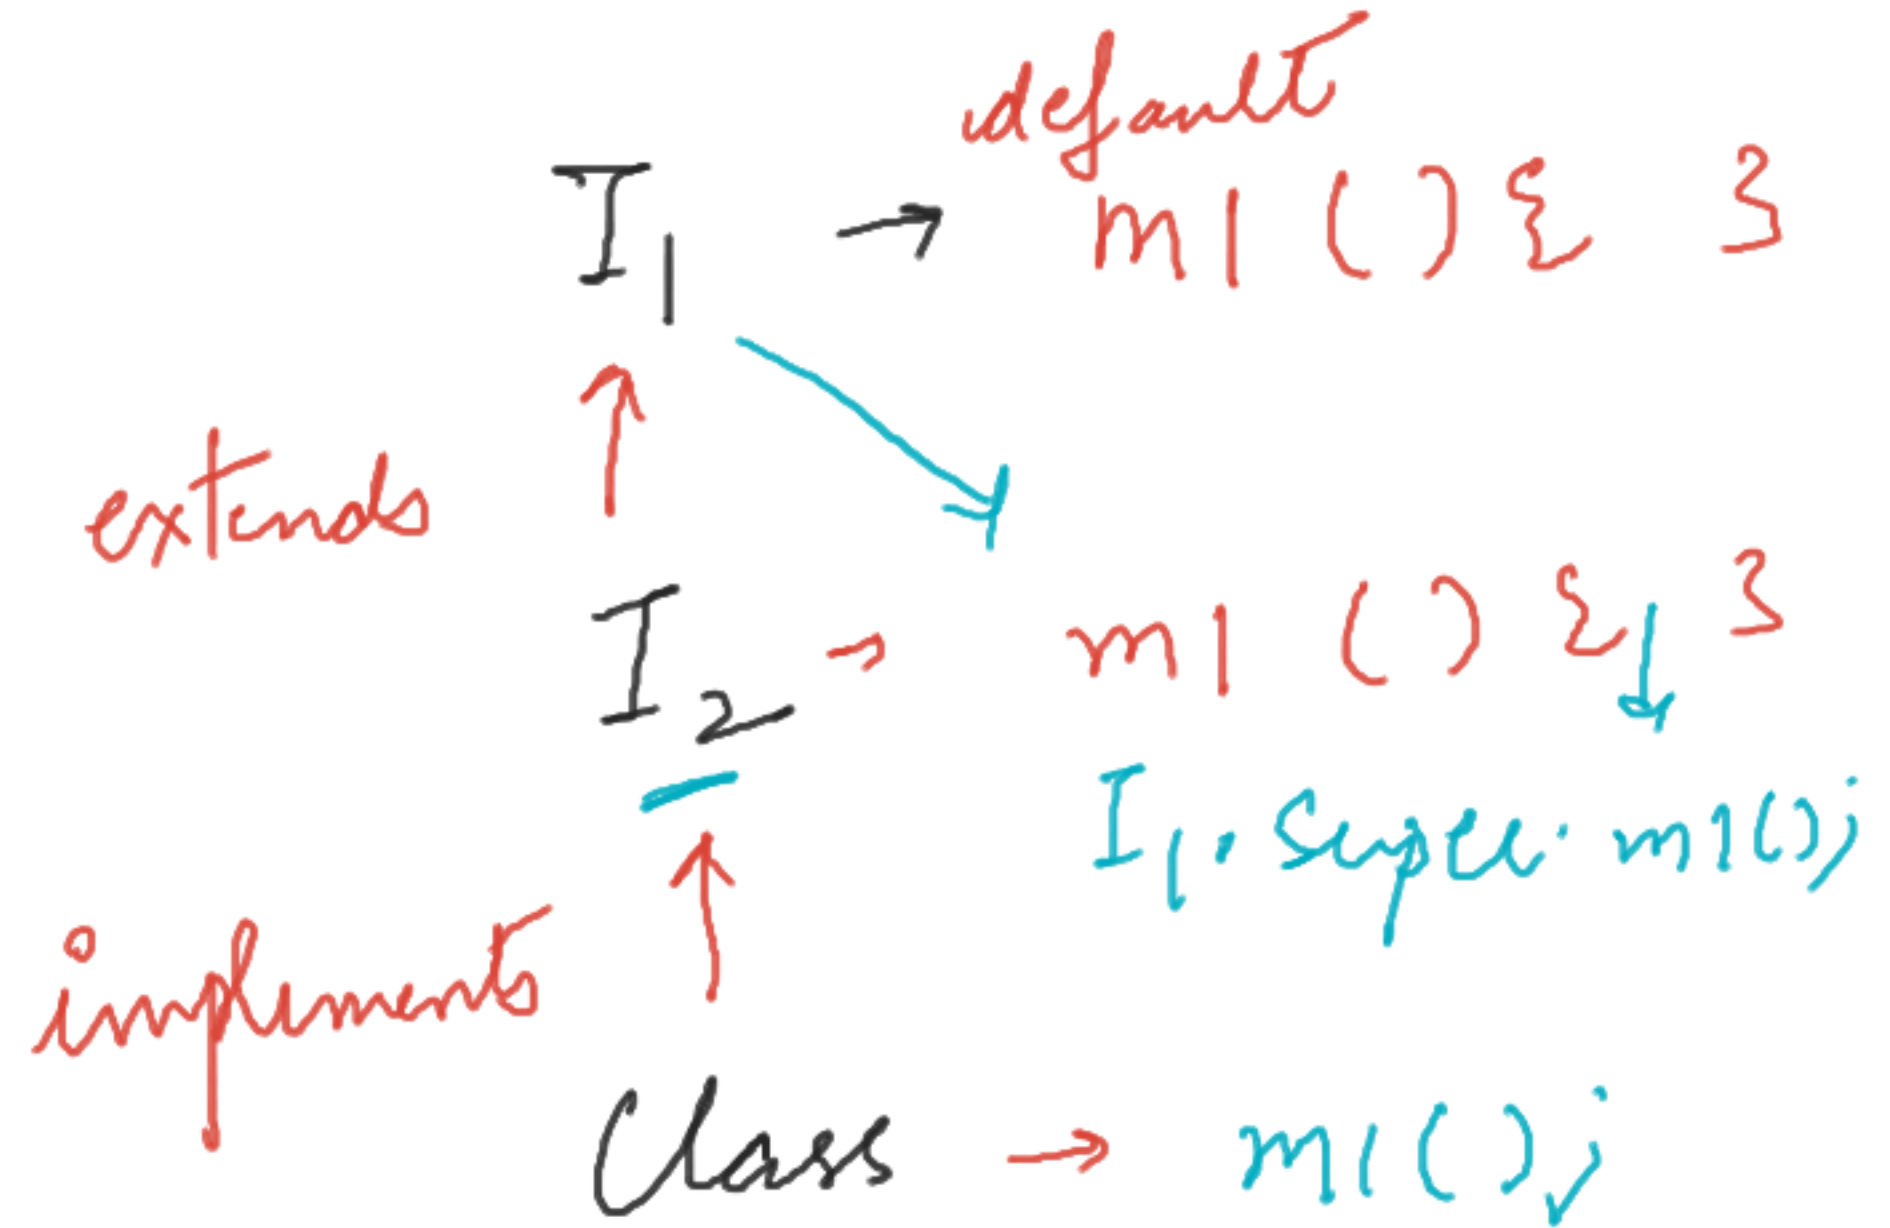 default
I1 → m1 () { }
extends
I2 → m1 () { }
I1.super.m1();
implements
Class → m1();